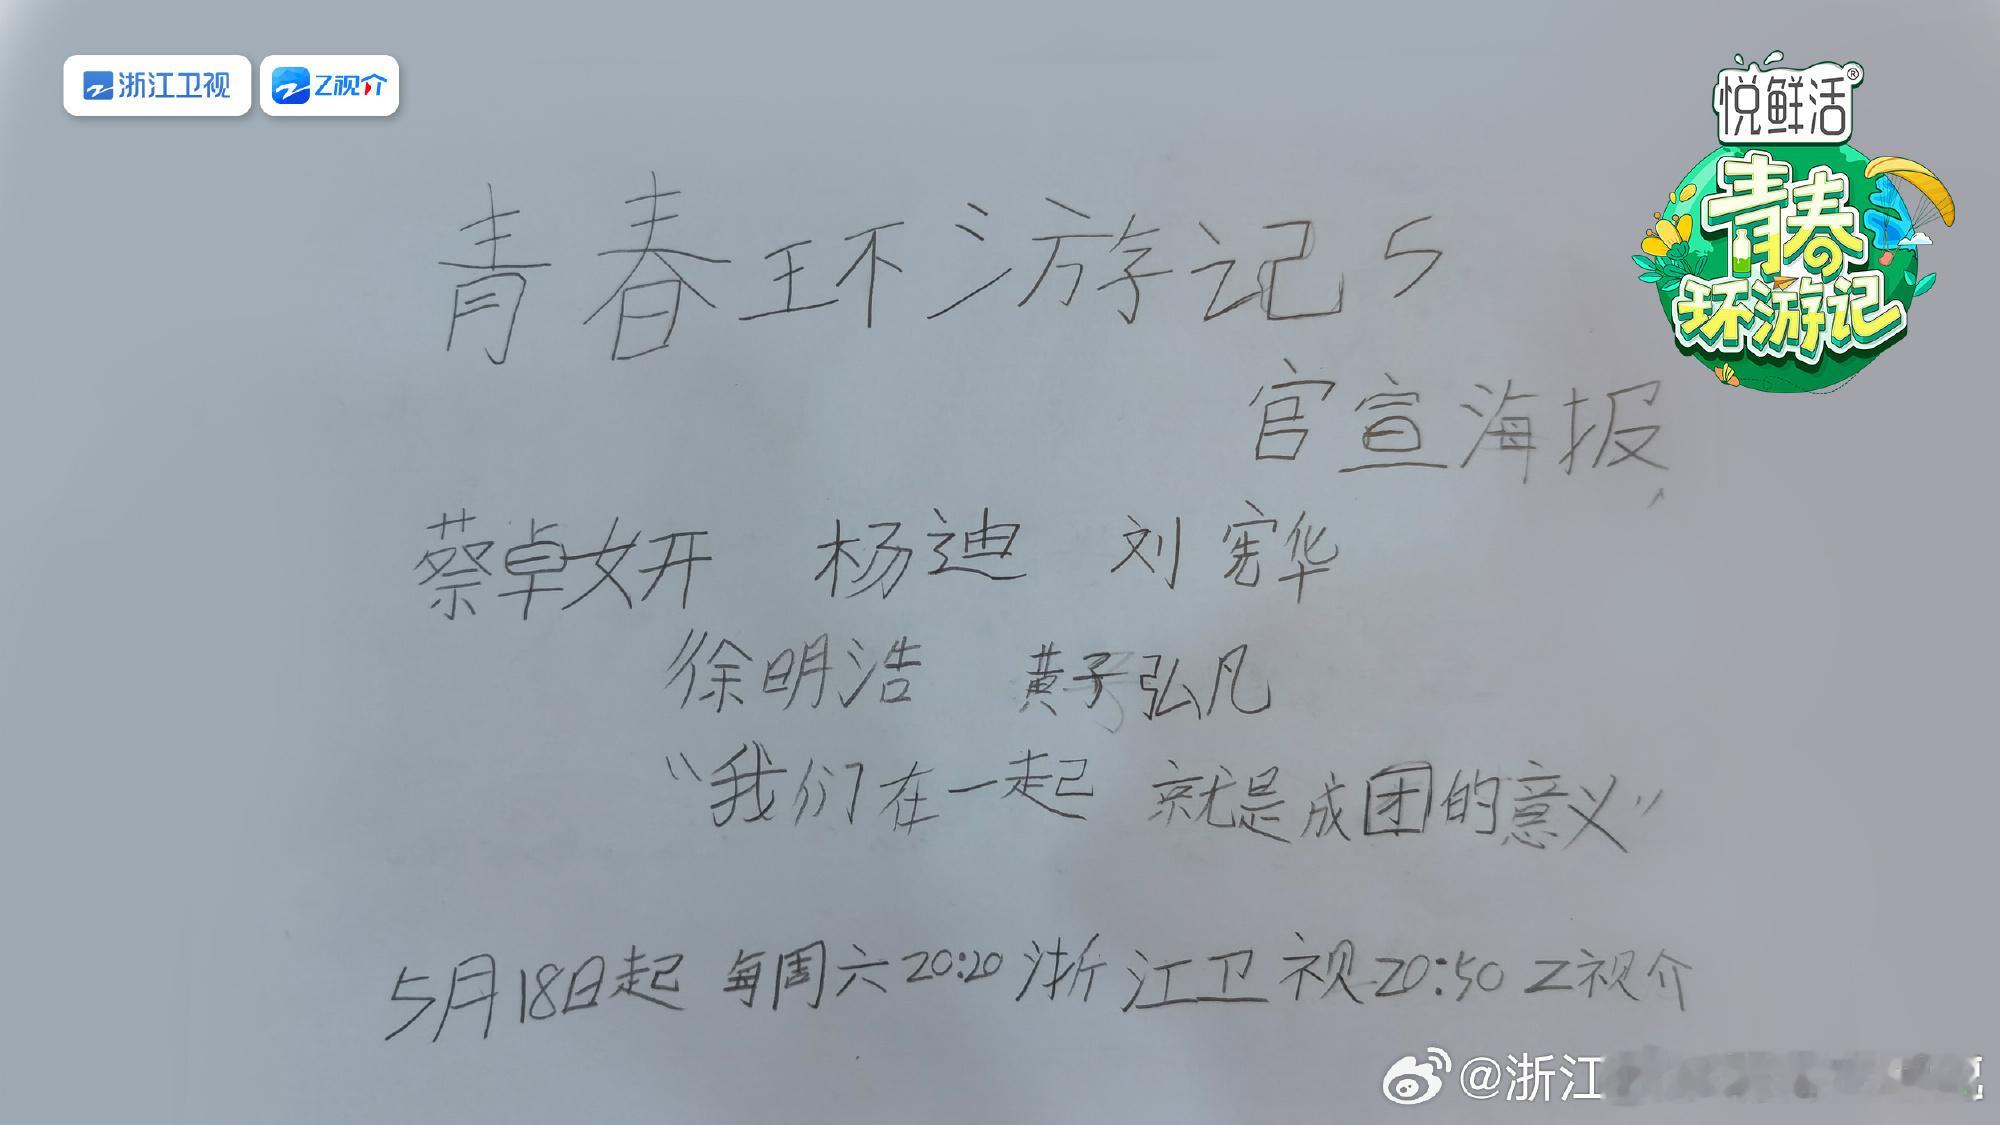 浙江卫视 Z视介
悦鲜活®
青春
环游记
青春环游记5
官宣海报
蔡卓妍 杨迪 刘宪华
徐明浩 黄子弘凡
“我们在一起 就是成团的意义”
5月18日起 每周六20:20浙江卫视20:50Z视介
@浙江